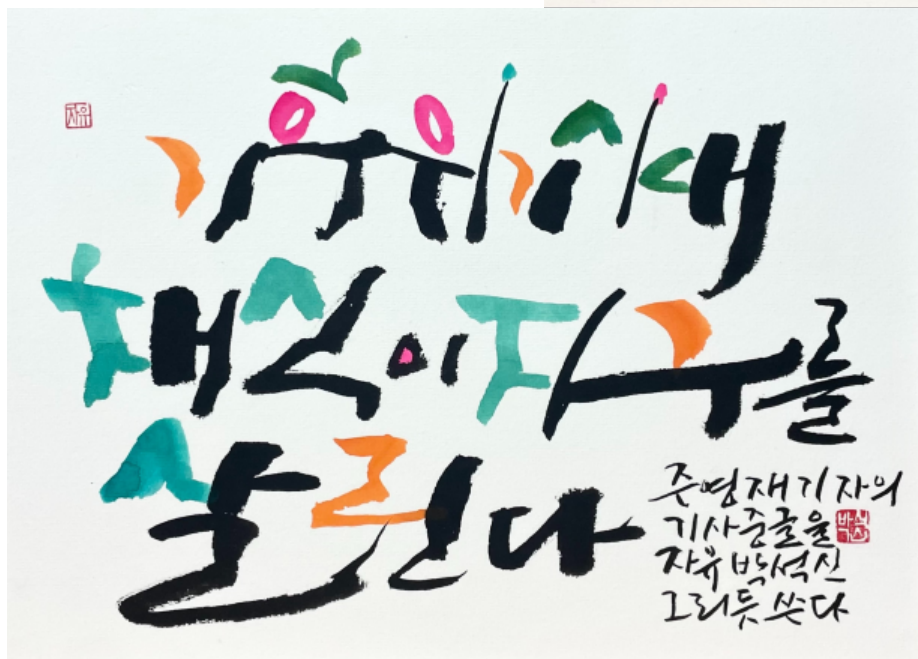 자유
기후위기시대
채식이 지구를
살린다
주영재기자의
기사중글을 박석신
자유 박석신
그리듯 쓰다